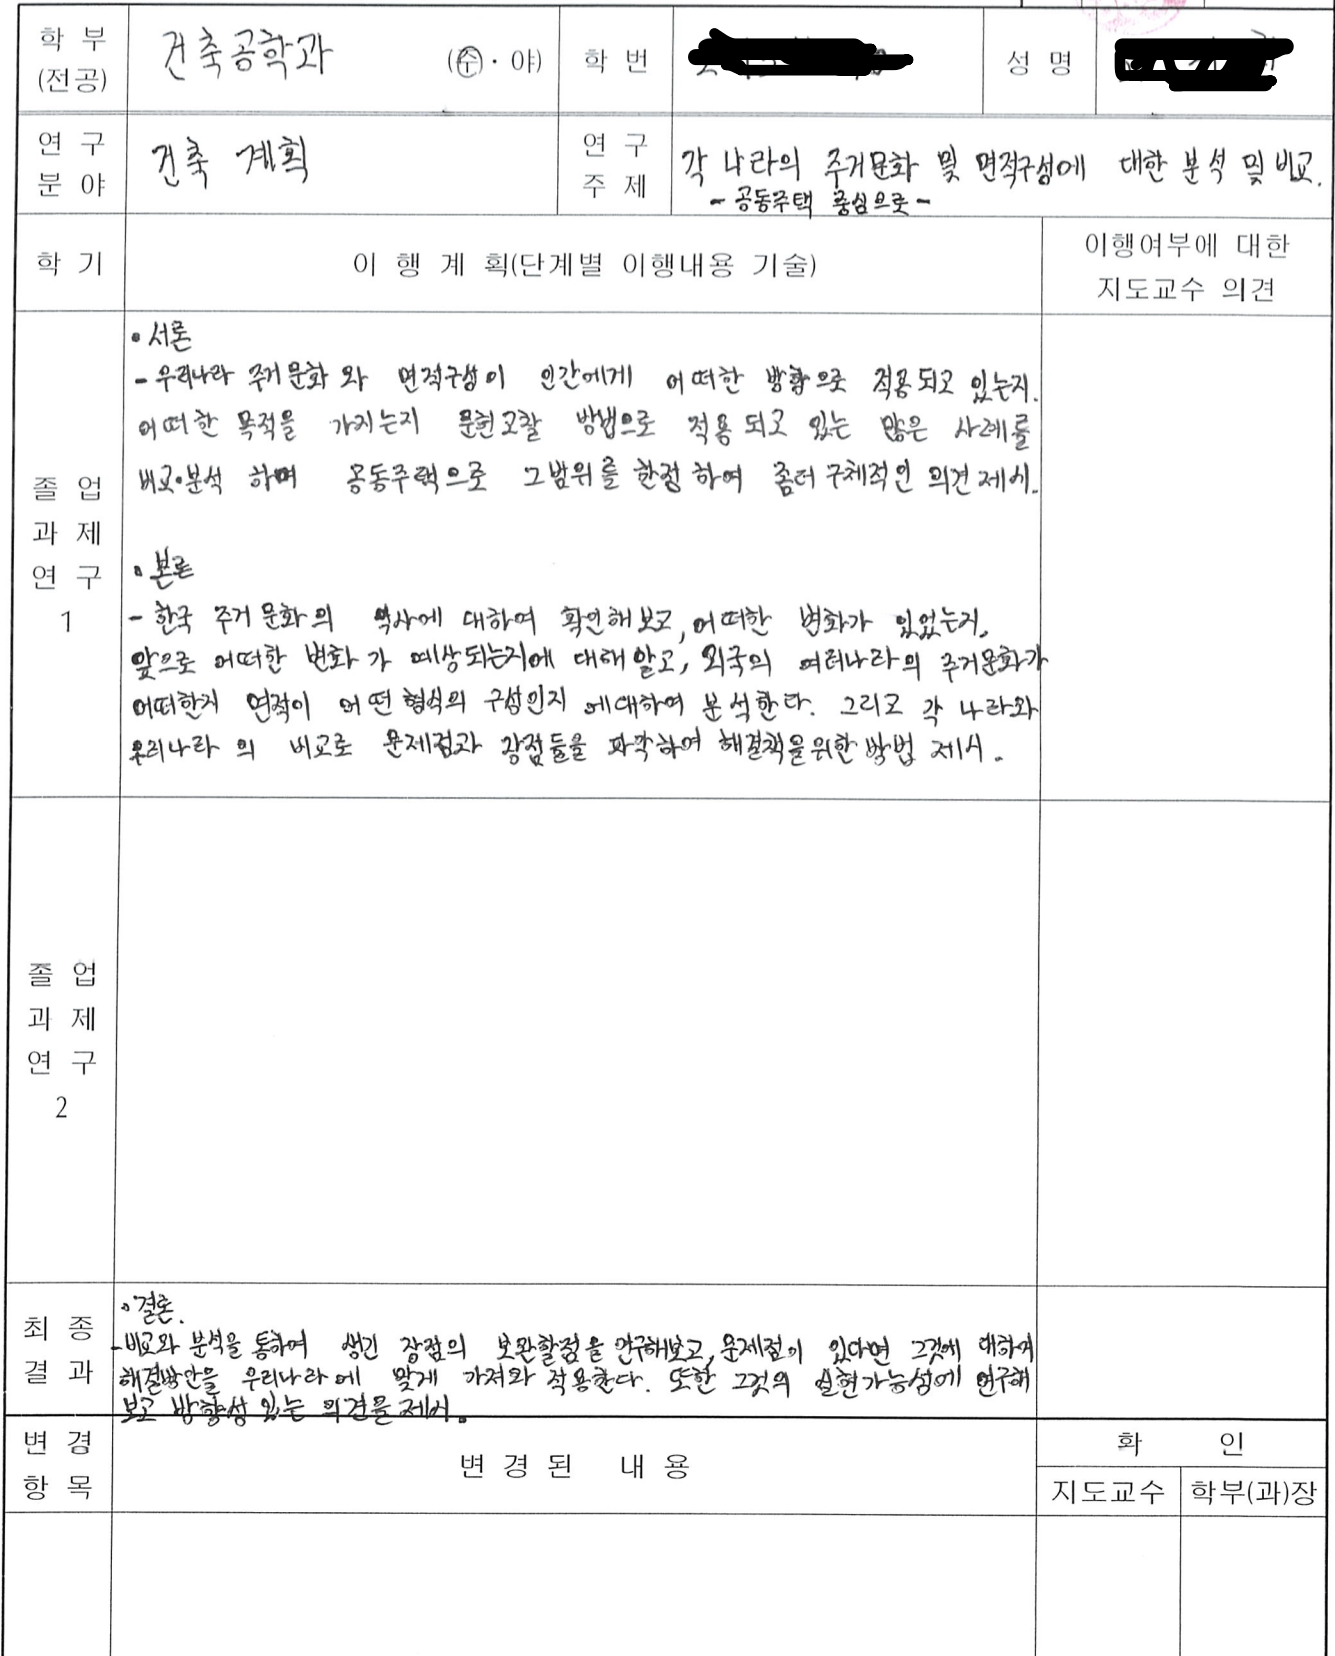 학 부
(전공)
건축공학과
(주·야)
학 번
성 명
연 구
분 야
건축 계획
연 구
주 제
각 나라의 주거문화 및 면적구성에 대한 분석 및 비교.
- 공동주택 중심으로 -
학 기
이 행 계 획(단계별 이행내용 기술)
이행여부에 대한
지도교수 의견
졸 업
과 제
연 구
1
• 서론
- 우리나라 주거문화 와 면적구성이 인간에게 어떠한 방향으로 적용되고 있는지.
어떠한 목적을 가지는지 문헌고찰 방법으로 적용되고 있는 많은 사례를
비교·분석 하며 공동주택으로 그범위를 한정하여 좀더 구체적인 의견 제시.
• 본론
- 한국 주거문화의 역사에 대하여 확인해보고, 어떠한 변화가 있었는지.
앞으로 어떠한 변화가 예상되는지에 대해 알고, 외국의 여러나라의 주거문화가
어떠한지 면적이 어떤 형식의 구성인지 에대하여 분석한다. 그리고 각 나라와
우리나라의 비교로 문제점과 장점들을 파악하여 해결책을위한 방법 제시.
졸 업
과 제
연 구
2
최 종
결 과
• 결론.
- 비교와 분석을 통하여 생긴 장점의 보완할점을 연구해보고, 문제점이 있다면 그것에 대하여
해결방안을 우리나라에 맞게 가져와 적용한다. 또한 그것의 실현가능성에 연구해
보고 방향성 있는 의견을 제시.
변 경
항 목
변 경 된 내 용
확 인
지도교수
학부(과)장